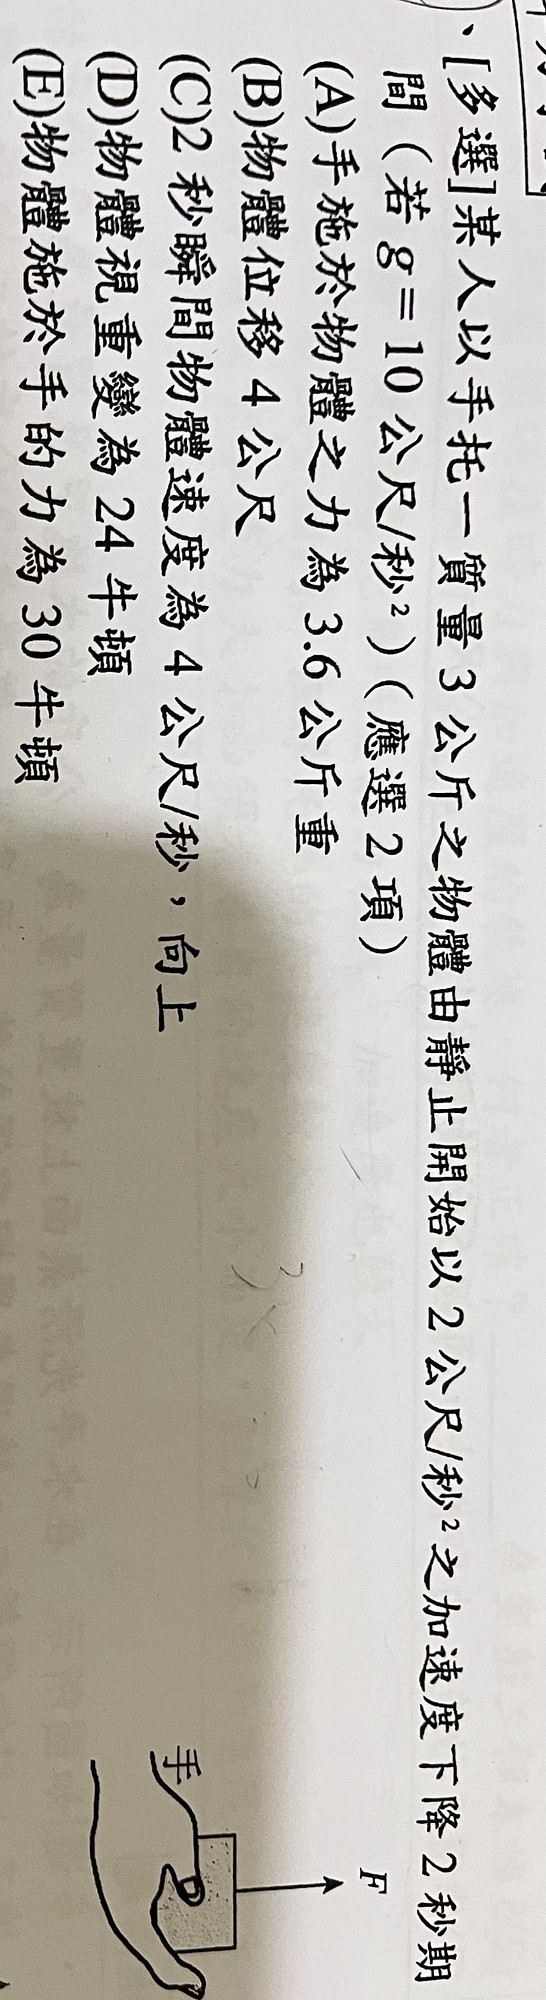 、[多選]某人以手托一質量 3 公斤之物體由靜止開始以 2 公尺/秒²之加速度下降 2 秒期
間（若 g = 10 公尺/秒²）（應選 2 項）
(A)手施於物體之力為 3.6 公斤重
(B)物體位移 4 公尺
(C)2 秒瞬間物體速度為 4 公尺/秒，向上
(D)物體視重變為 24 牛頓
(E)物體施於手的力為 30 牛頓
F
手